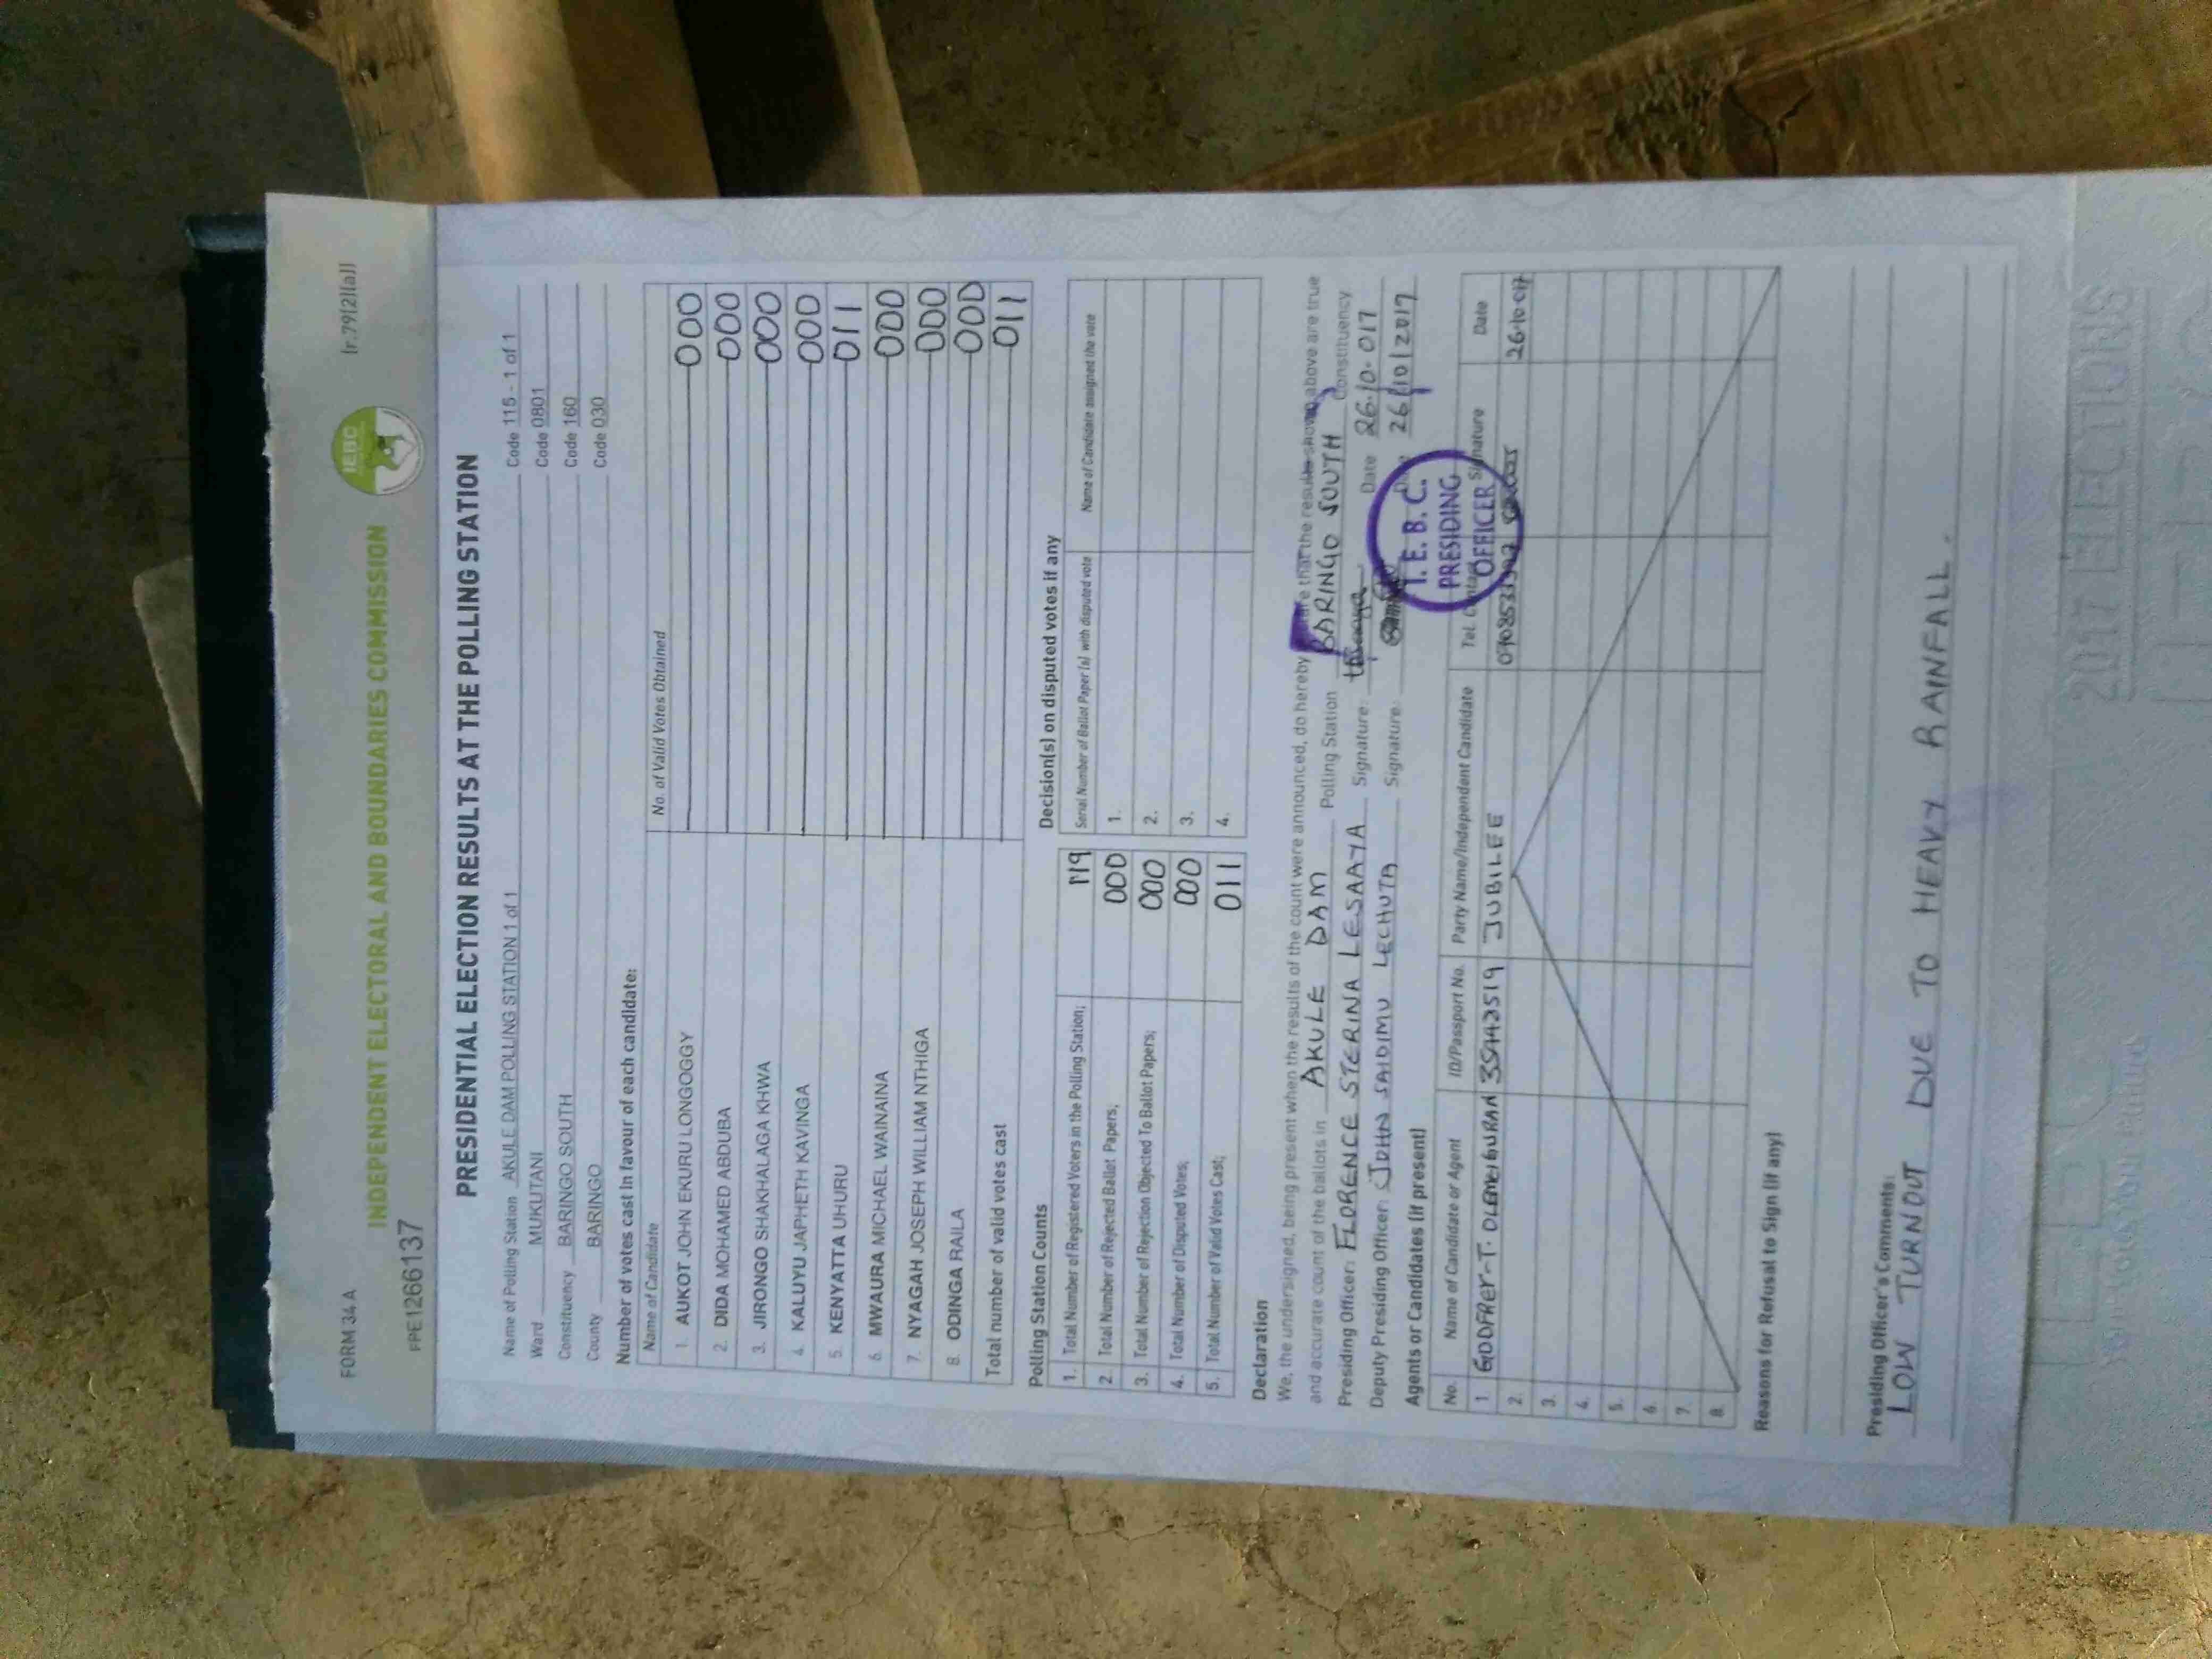 FORM 34 A
[r.79(2)(a)]
INDEPENDENT ELECTORAL AND BOUNDARIES COMMISSION
IEBC
FPE1266137
PRESIDENTIAL ELECTION RESULTS AT THE POLLING STATION
Name of Polling Station AKULE DAM POLLING STATION 1 of 1 Code 115 - 1 of 1
Ward MUKUTANI Code 0801
Constituency BARINGO SOUTH Code 160
County BARINGO Code 030
Number of votes cast in favour of each candidate:
Name of Candidate No. of Valid Votes Obtained
1. AUKOT JOHN EKURU LONGOGGY 000
2. DIDA MOHAMED ABDUBA 000
3. JIRONGO SHAKHALAGA KHWA 000
4. KALUYU JAPHETH KAVINGA 000
5. KENYATTA UHURU 011
6. MWAURA MICHAEL WAINAINA 000
7. NYAGAH JOSEPH WILLIAM NTHIGA 000
8. ODINGA RAILA 000
Total number of valid votes cast 011
Polling Station Counts
1. Total Number of Registered Voters in the Polling Station; 119
2. Total Number of Rejected Ballot Papers; 000
3. Total Number of Rejection Objected To Ballot Papers; 000
4. Total Number of Disputed Votes; 000
5. Total Number of Valid Votes Cast; 011
Decision(s) on disputed votes if any
Serial Number of Ballot Paper (s) with disputed vote Name of Candidate assigned the vote
1.
2.
3.
4.
Declaration
We, the undersigned, being present when the results of the count were announced, do hereby that the results shown above are true
and accurate count of the ballots in AKULE DAM Polling Station BARINGO SOUTH Constituency
Presiding Officer: FLORENCE STERINA LESAAYA Signature: Date 26.10.017
Deputy Presiding Officer: JOHN SAIDIMU LECHUTA Signature: 26/10/2017
I. E. B. C.
PRESIDING
OFFICER
Agents or Candidates (if present)
No. Name of Candidate or Agent ID/Passport No. Party Name/Independent Candidate Tel. Contact Signature Date
1 GODFREY-T. JUBILEE 26.10.017
2.
3.
4.
5.
6.
7.
8.
Reasons for Refusal to Sign (if any)
Presiding Officer's Comments:
LOW TURNOUT DUE TO HEAVY RAINFALL.
2017 ELECTIONS